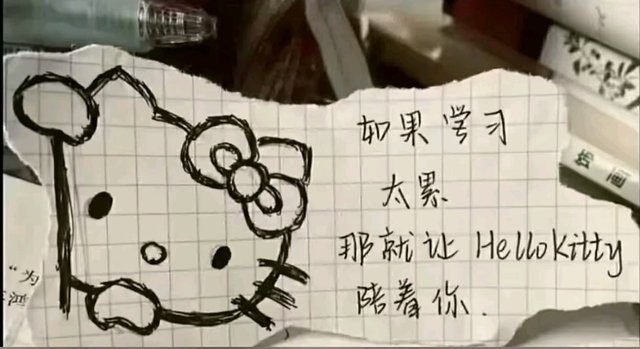 如果学习
太累
那就让 HelloKitty
陪着你.
"为